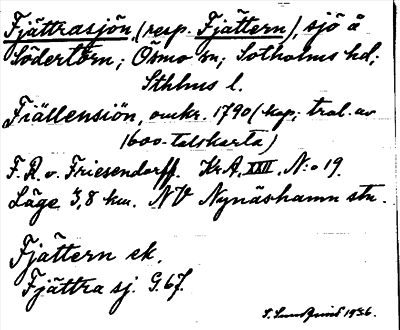 Fjättrasjön, (resp. Fjättern), sjö å
Södertörn; Ösmo sn, Sotholms hd,
Sthlms l.
Fiällensiön, omkr. 1790 (kop. tral. av
1600-talskarta)
F. R. v. Friesendorff. Kr A. XXII. N:o 19.
Läge 3,8 km. NV Nynäshamn stn.
Fjättern ek.
Fjättra sj. G. 67.
1936.